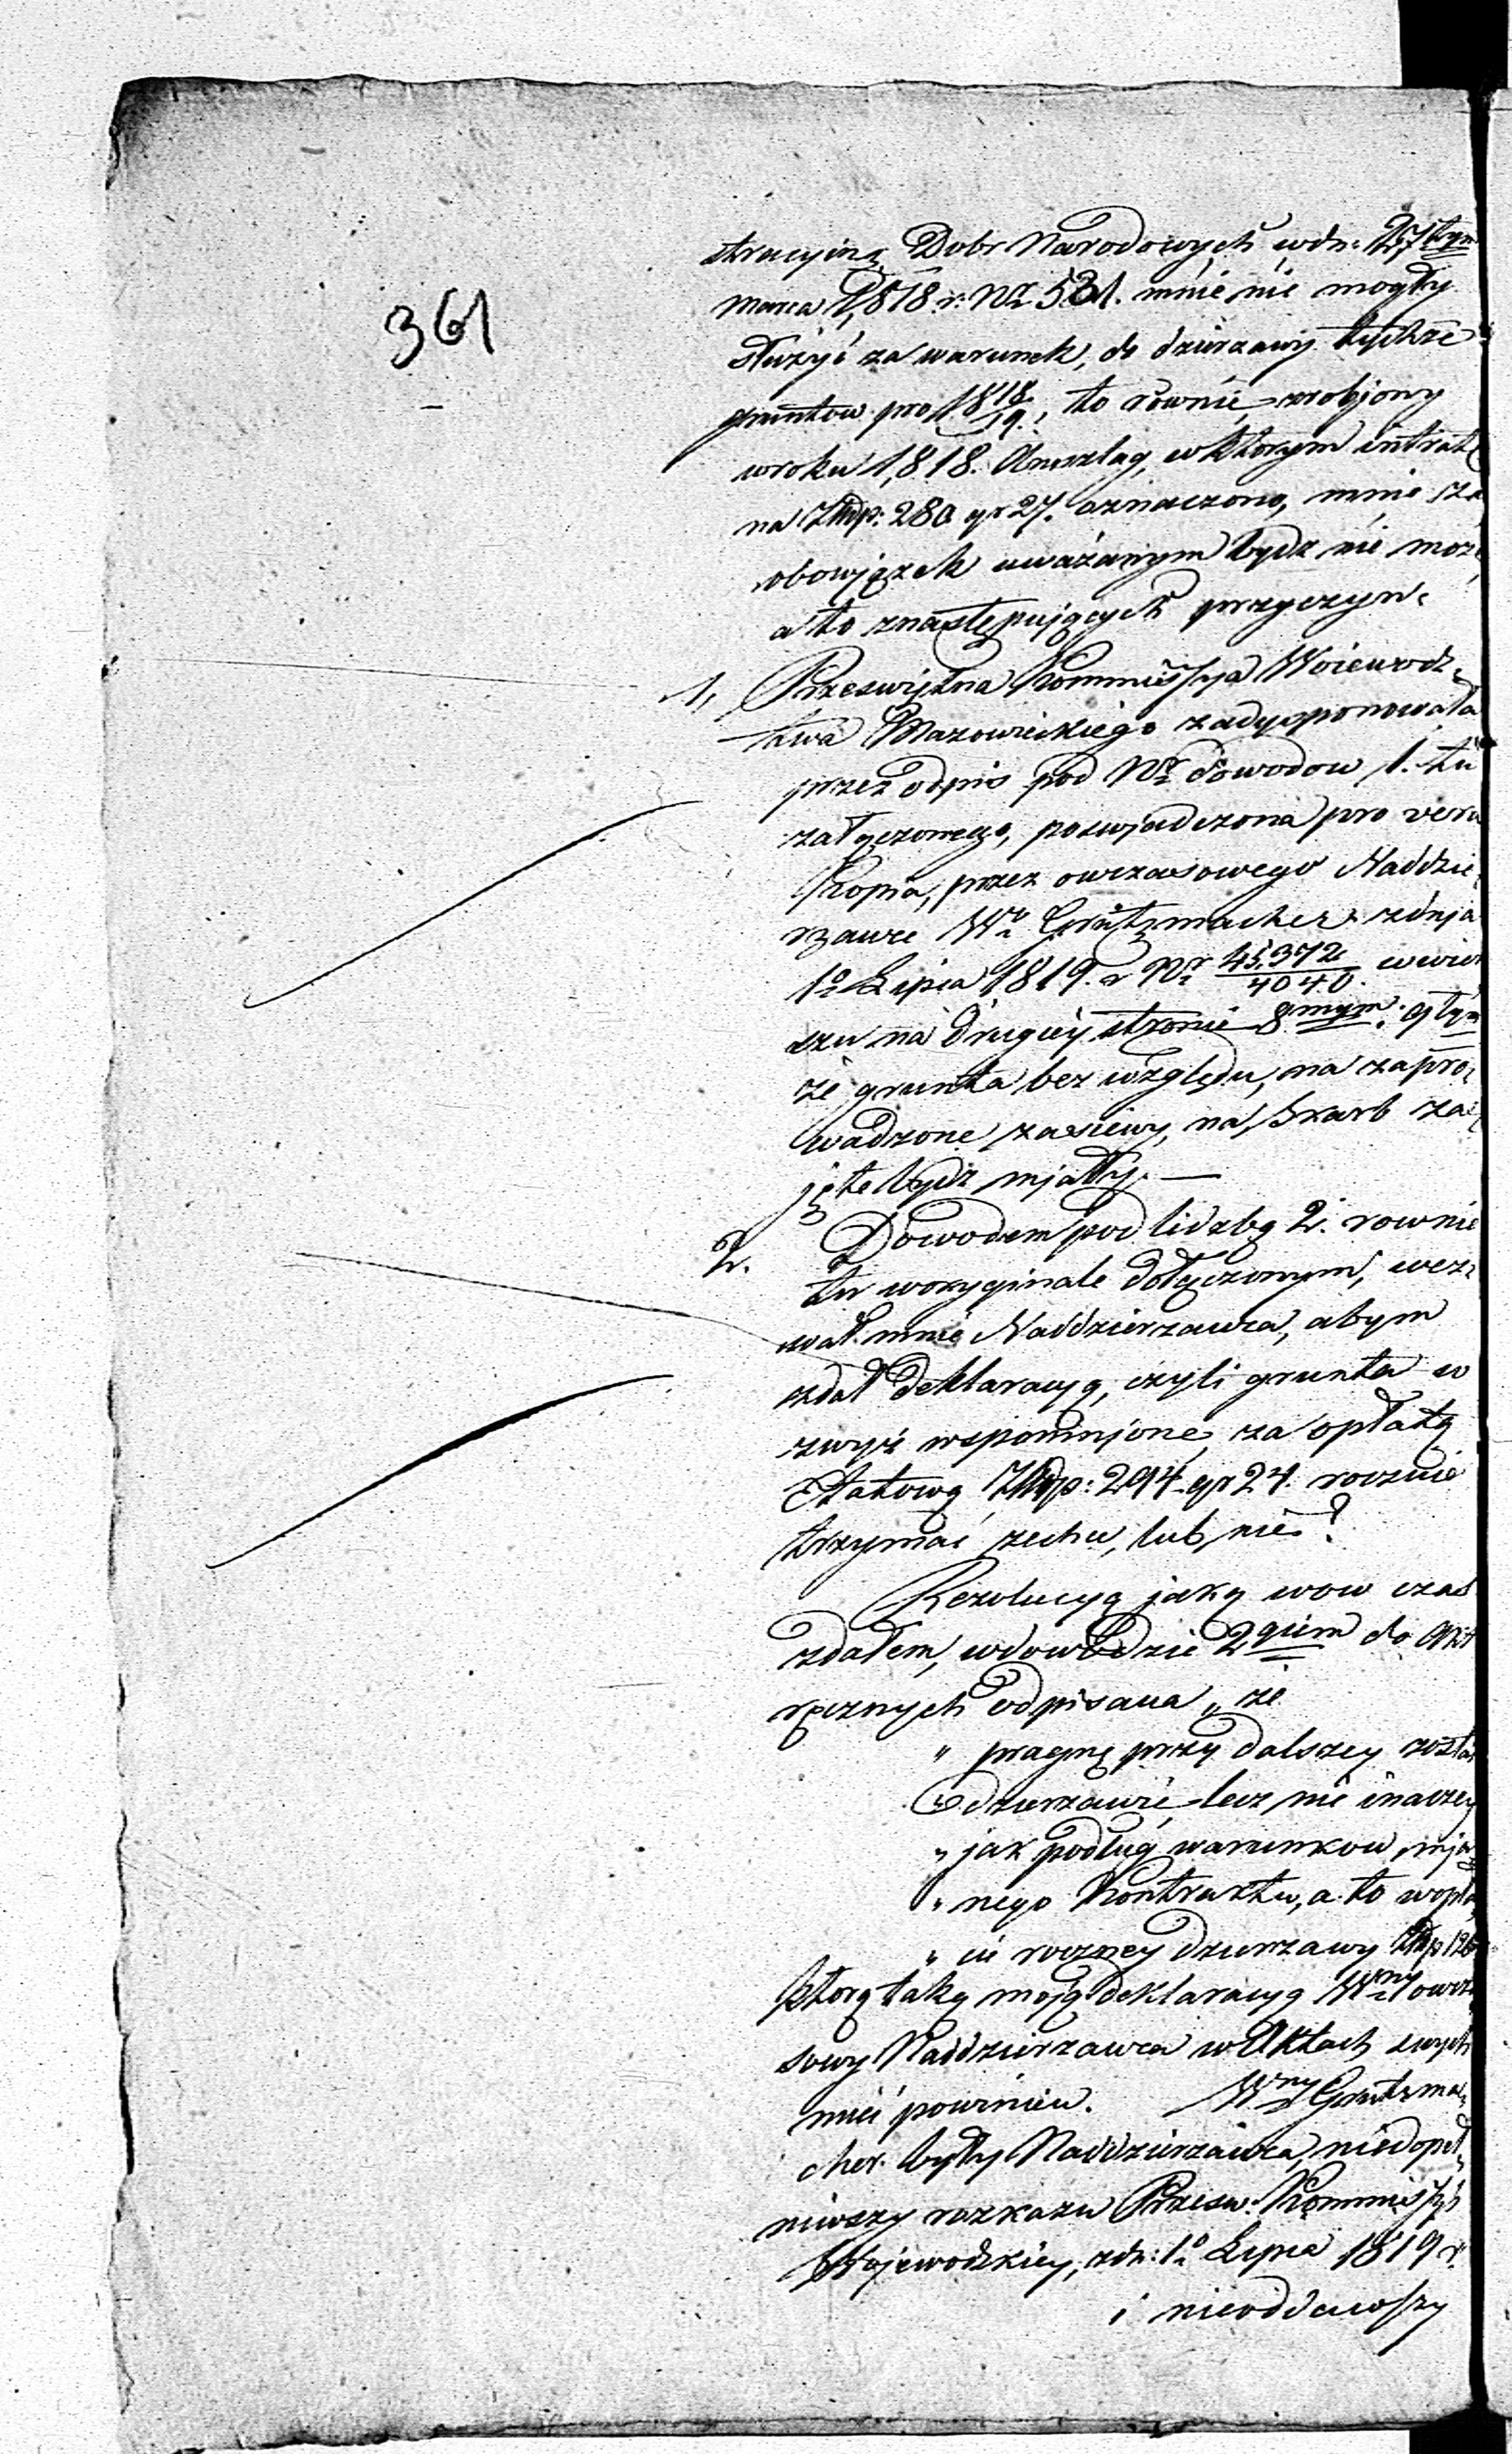 361
stracyiną Dobr Narodowych wdn: 27tym
Marca 1,818 r: Nr 531. mnie nie mogły
służyć za warunek, do dzierzawy tychże
gruntow pro 1818/19., to równie zrobjony
wroku 1,818. Anszlag, wktorym intratę
na Złłp: 280 gr 27. oznaczono, mnie za
obowjązek uważanym bydz nie może
a to znastępujących przyczyn:
1, Prześwjętna Kommissya Woiewodz„
twa Mazowieckiego zadysponowała
przez odpis pod Nr dowodow 1. tu
załączonego, poswjadczona pro vera
Kopia, przez owczasowego Naddzie„
rzawce Wo Grützmacher zdnja
1o Lipca 1819. r Nr 45,372/4040. wwier
szu na drugiey stronie 8mym. 9tym
że grunta bez względu, na zapro„
wadzone zasiewy, na Skarb za„
jęte bydź mjały. —
2. Dowodem pod lidzbą 2. rownie
tu woryginale dołączonym, wez„
wał mnie Naddzierzawca, abym
zdał deklaracyą, czyli grunta w
zwyż wspomnjone, za opłatą
Etatową Złłp: 294 gr 24. rocznie
trzymać zechcę, lub nie?
Rezolucyą jaką wow czas
zdałem, wdowodzie 2giem do Akt
ręcznych odpisana „ że
„ pragnę przy dalszey zostać
„ dzierzawie, lecz nie inaczey
„ jak podług warunkow, mja„
„ nego Kontraktu, a to wopła„
„ cie roczney dzierzawy Złłp 126
ktorą taką moją deklaracyą Wny owcza„
sowy Naddzierzawca w Aktach swych
mieć powinien. Wny Grutzma„
cher. były Naddzierzawca, niedopeł„
niwszy rozkazu Przesw: Kommissyi
Wojewodzkiey, zdn: 1o Lipca 1819 r
i nieoddawszy